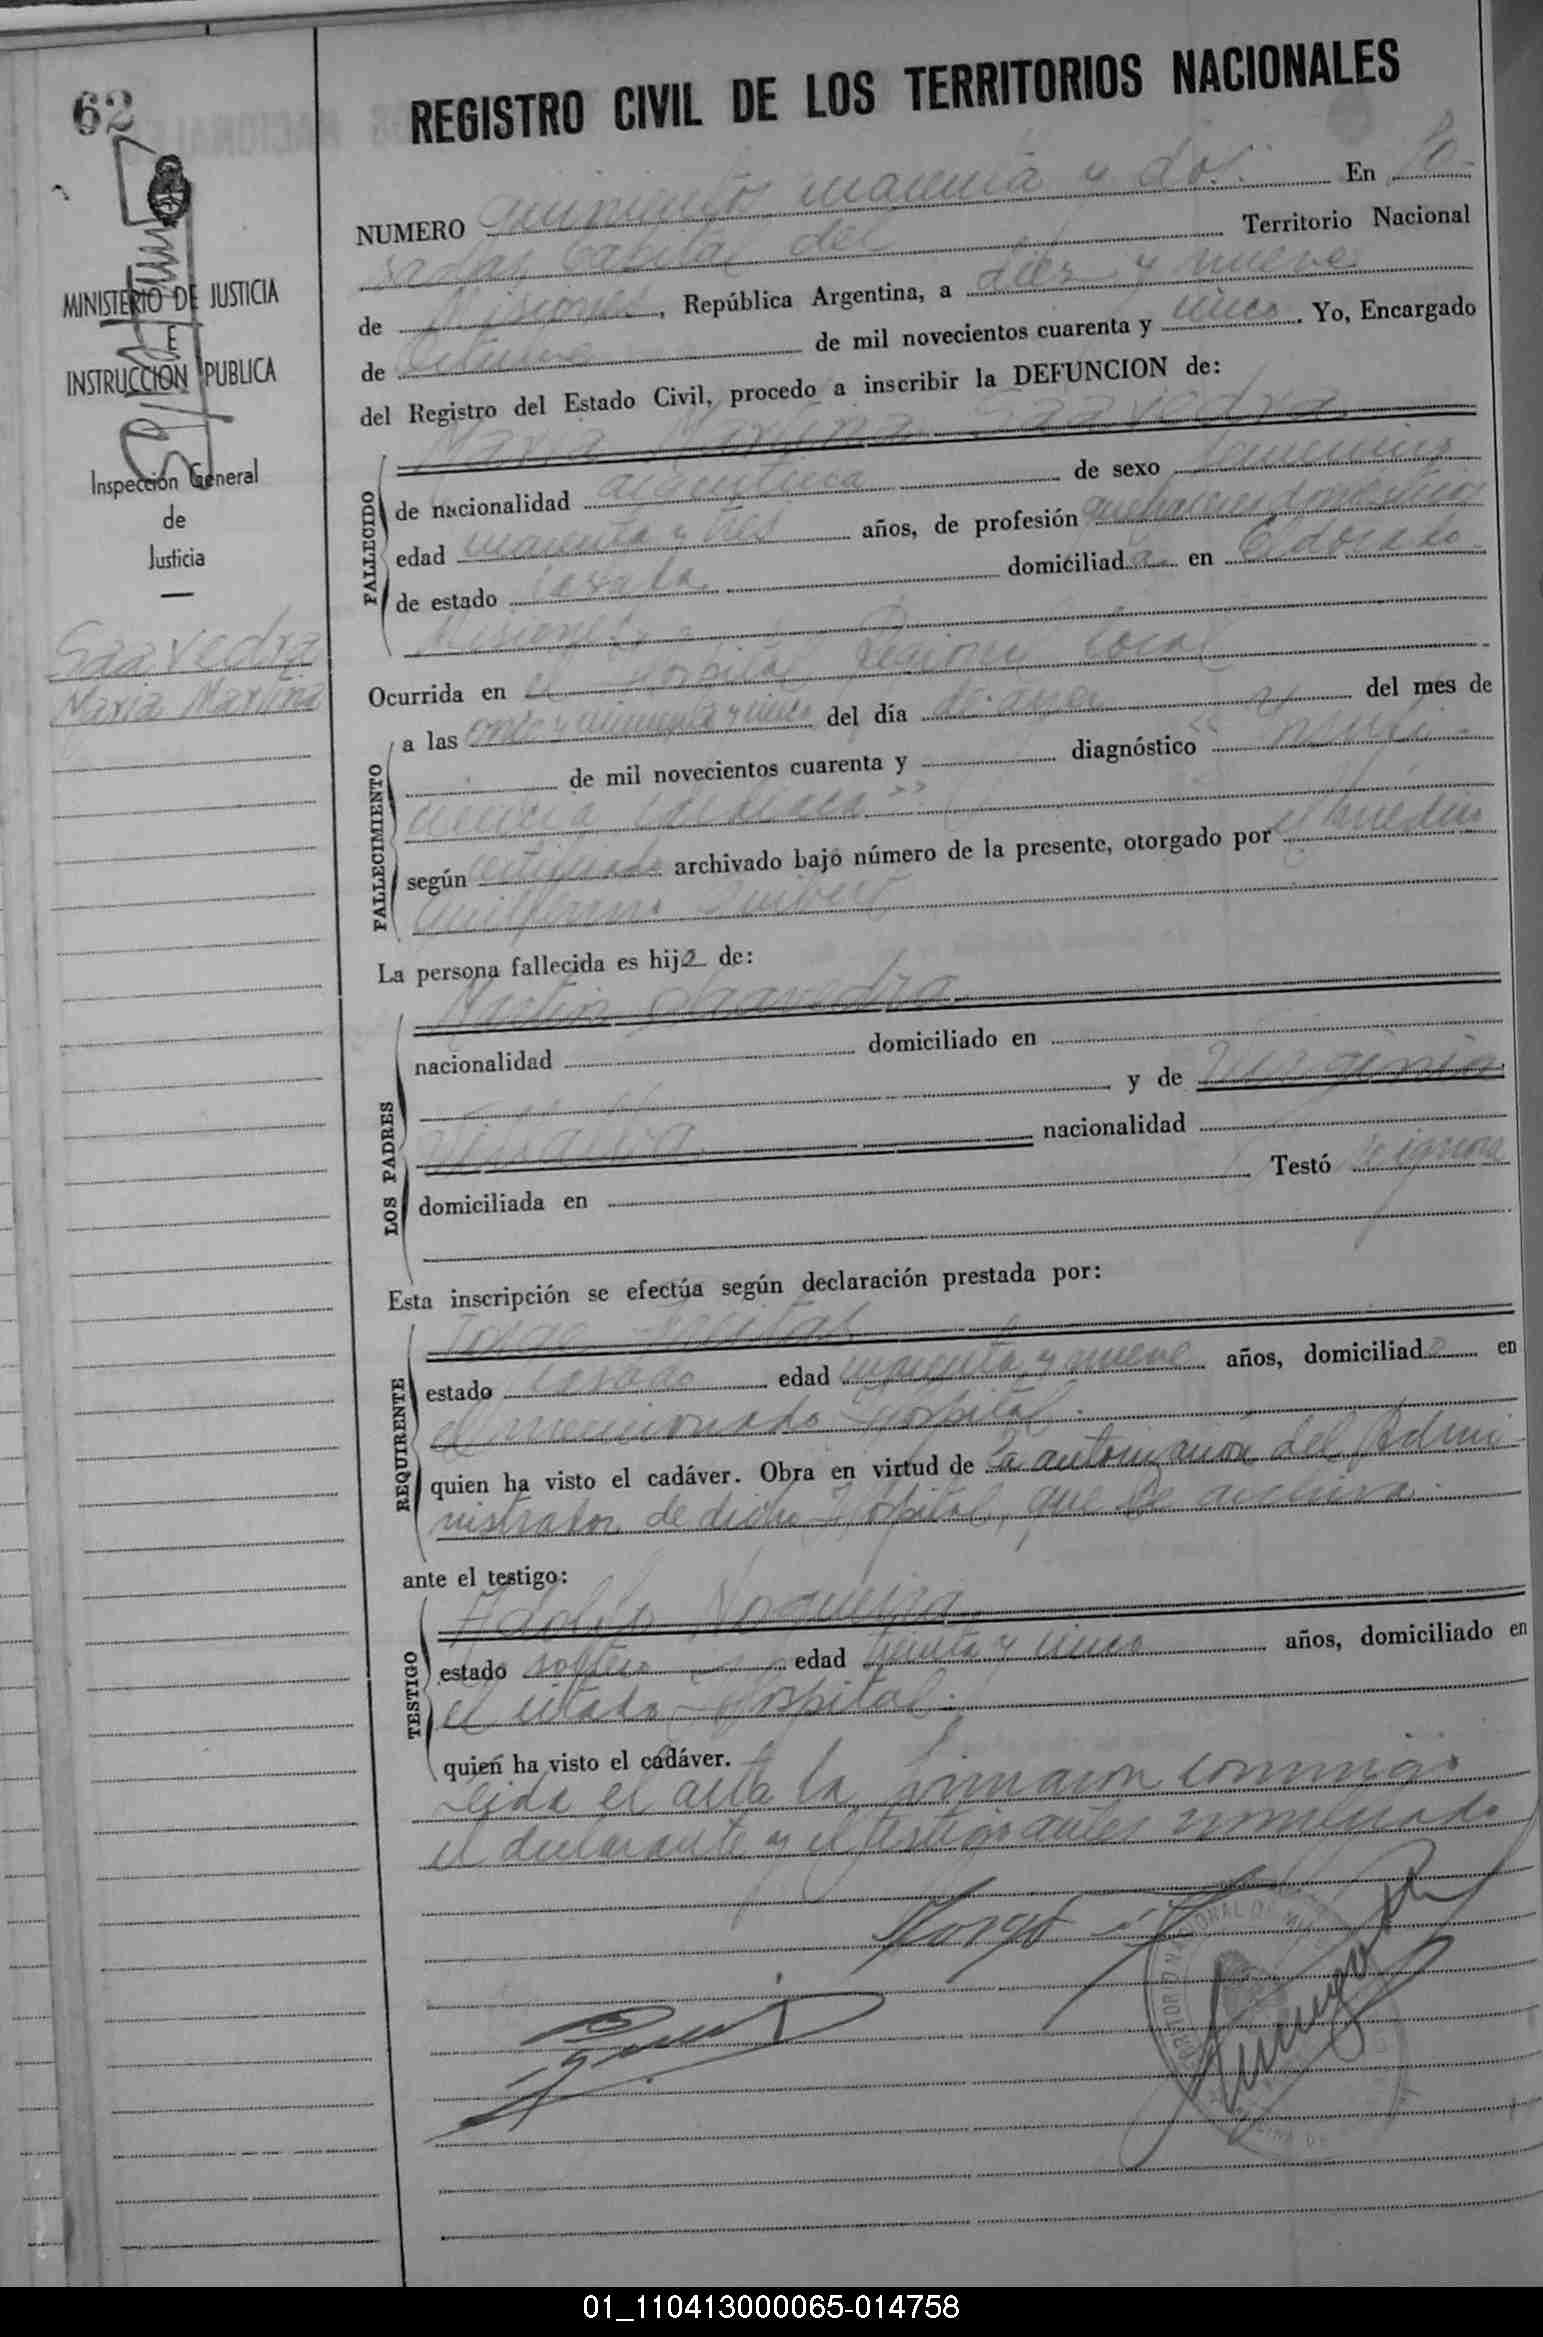 62
REGISTRO CIVIL DE LOS TERRITORIOS NACIONALES
MINISTERIO DE JUSTICIA
E
INSTRUCCION PUBLICA
Inspección General
de
Justicia
Saavedra
Maria Martina
NUMERO quinientos cuarenta y dos. En Po-
sadas Capital del Territorio Nacional
de Misiones, República Argentina, a diez y nueve
de Octubre de mil novecientos cuarenta y cinco. Yo, Encargado
del Registro del Estado Civil, procedo a inscribir la DEFUNCION de:
Maria Martina Saavedra
FALLECIDO
de nacionalidad argentina de sexo femenino
edad cuarenta y tres años, de profesión quehaceres domésticos
de estado casada domiciliada en Eldorado
Misiones
Ocurrida en el Hospital Regional local
FALLECIMIENTO
a las once y cincuenta y cinco del día de ayer del mes de
de mil novecientos cuarenta y diagnóstico "Insufi-
ciencia cardiaca"
según certificado archivado bajo número de la presente, otorgado por el médico
Guillermo
La persona fallecida es hija de:
LOS PADRES
Martin Saavedra
nacionalidad domiciliado en
y de Virginia
nacionalidad
domiciliada en Testó se ignora
Esta inscripción se efectúa según declaración prestada por:
REQUIRENTE
Jorge Freitas
estado casado edad cuarenta y nueve años, domiciliado en
el mencionado Hospital.
quien ha visto el cadáver. Obra en virtud de la autorización del Admi-
nistrador de dicho Hospital, que se archiva.
ante el testigo:
TESTIGO
Adolfo Nogueira
estado soltero edad treinta y cinco años, domiciliado en
el citado Hospital.
quien ha visto el cadáver.
Leida el acta la firmaron conmigo
el declarante y el testigo antes nombrado
01_110413000065-014758